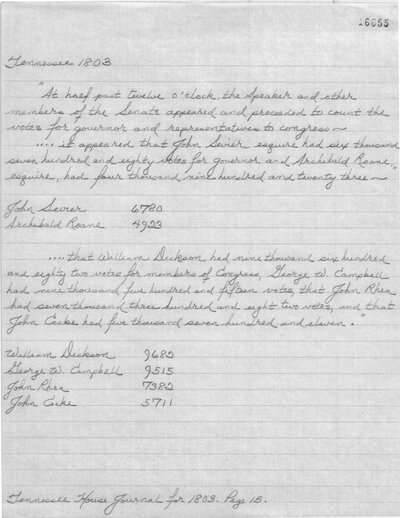 16655
Tennessee 1803
"At half past twelve o'clock the Speaker and other
members of the Senate appeared and proceeded to count the
votes for governor and representatives to congress~
.... it appeared that John Sevier esquire had six thousand
seven hundred and eighty votes for governor and Archibald Roane,
esquire, had four thousand nine hundred and twenty three~"
John Sevier 6780
Archibald Roane 4923
....that William Dickson had nine thousand six hundred
and eighty two votes for members of Congress, George W. Campbell
had nine thousand five hundred and fifteen votes, that John Rhea
had seven thousand three hundred and eight two votes, and that
John Cocke had five thousand seven hundred and eleven."
William Dickson 9682
George W. Campbell 9515
John Rhea 7382
John Cocke 5711
Tennessee House Journal for 1803. Page 15.